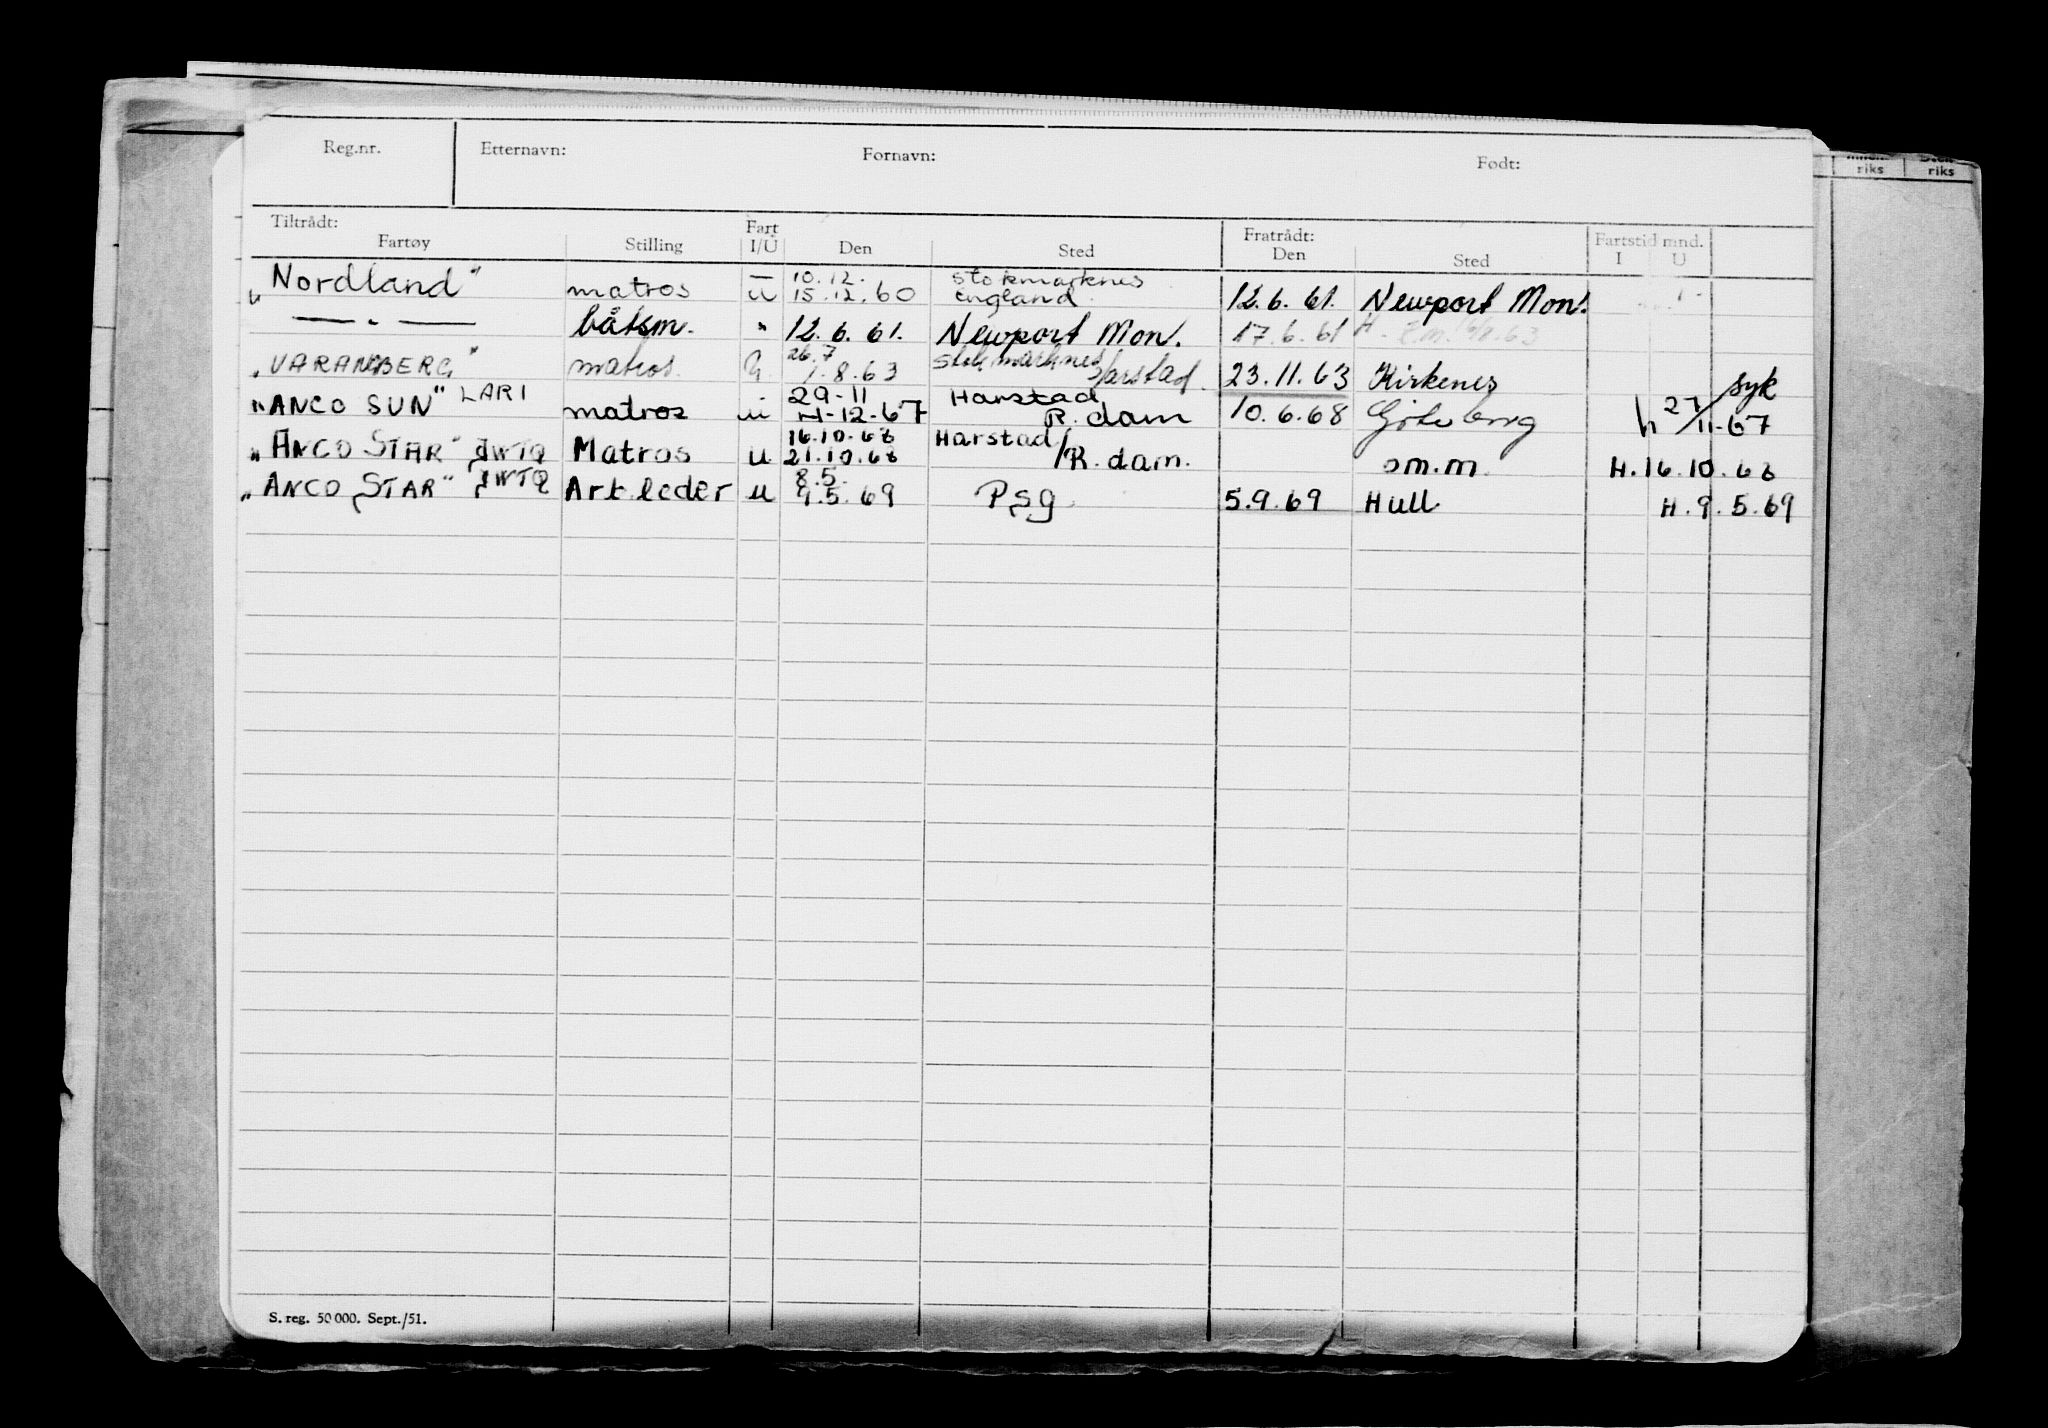 Reg.nr. Etternavn: Fornavn: Født:
riks riks
Tiltrådt: Fart Fratrådt: Fartstid mnd.
Fartøy Stilling I/U Den Sted Den Sted I U
10.12. Stokmarknes
„Nordland" matros u 15.12.60 England 12.6.61. Newport Mon.
— „ — båtsm. " 12.6.61. Newport Mon. 17.6.61 H.
26.7 Stokmarknes
„VARANGBERG" matros 1.8.63 Harstad. 23.11.63 Kirkenes
29-11 Harstad syk
„ANCO SUN" LARI matros u 4-12-67 R.dam 10.6.68 Göteborg h 27/11-67
16.10.68 Harstad/
„ANCO STAR" JWTQ Matros u 21.10.68 R.dam. om.m H.16.10.68
8.5.
„ANCO STAR" JWTQ Arb.leder u 9.5.69 Psg 5.9.69 Hull H.9.5.69
S. reg. 50 000. Sept./51.